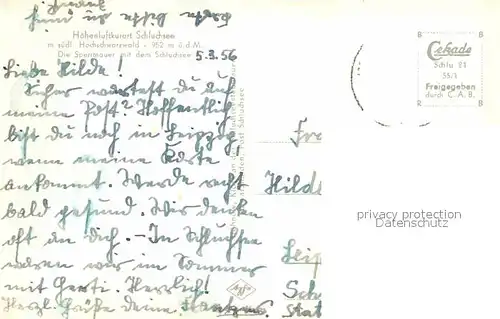 Höhenluftkurort Schluchsee
m südl. Hochschwarzwald - 952 m ü.d.M.
Die Sperrmauer mit dem Schluchsee
5.3.56
Liebe Hilde!
Sicher wartest du auf
meine Post? Hoffentlich
bist du noch in Leipzig
wenn meine Karte
ankommt. Werde recht
bald gesund. Wir denken
oft an dich. - In Schluchsee
waren wir im Sommer
mit Gerti. Herrlich!
Herzl. Grüße deine
Hilde
Leip
Cekade
Schlu 81
55/1
Freigegeben
durch C.A.B.
privacy protection
Datenschutz